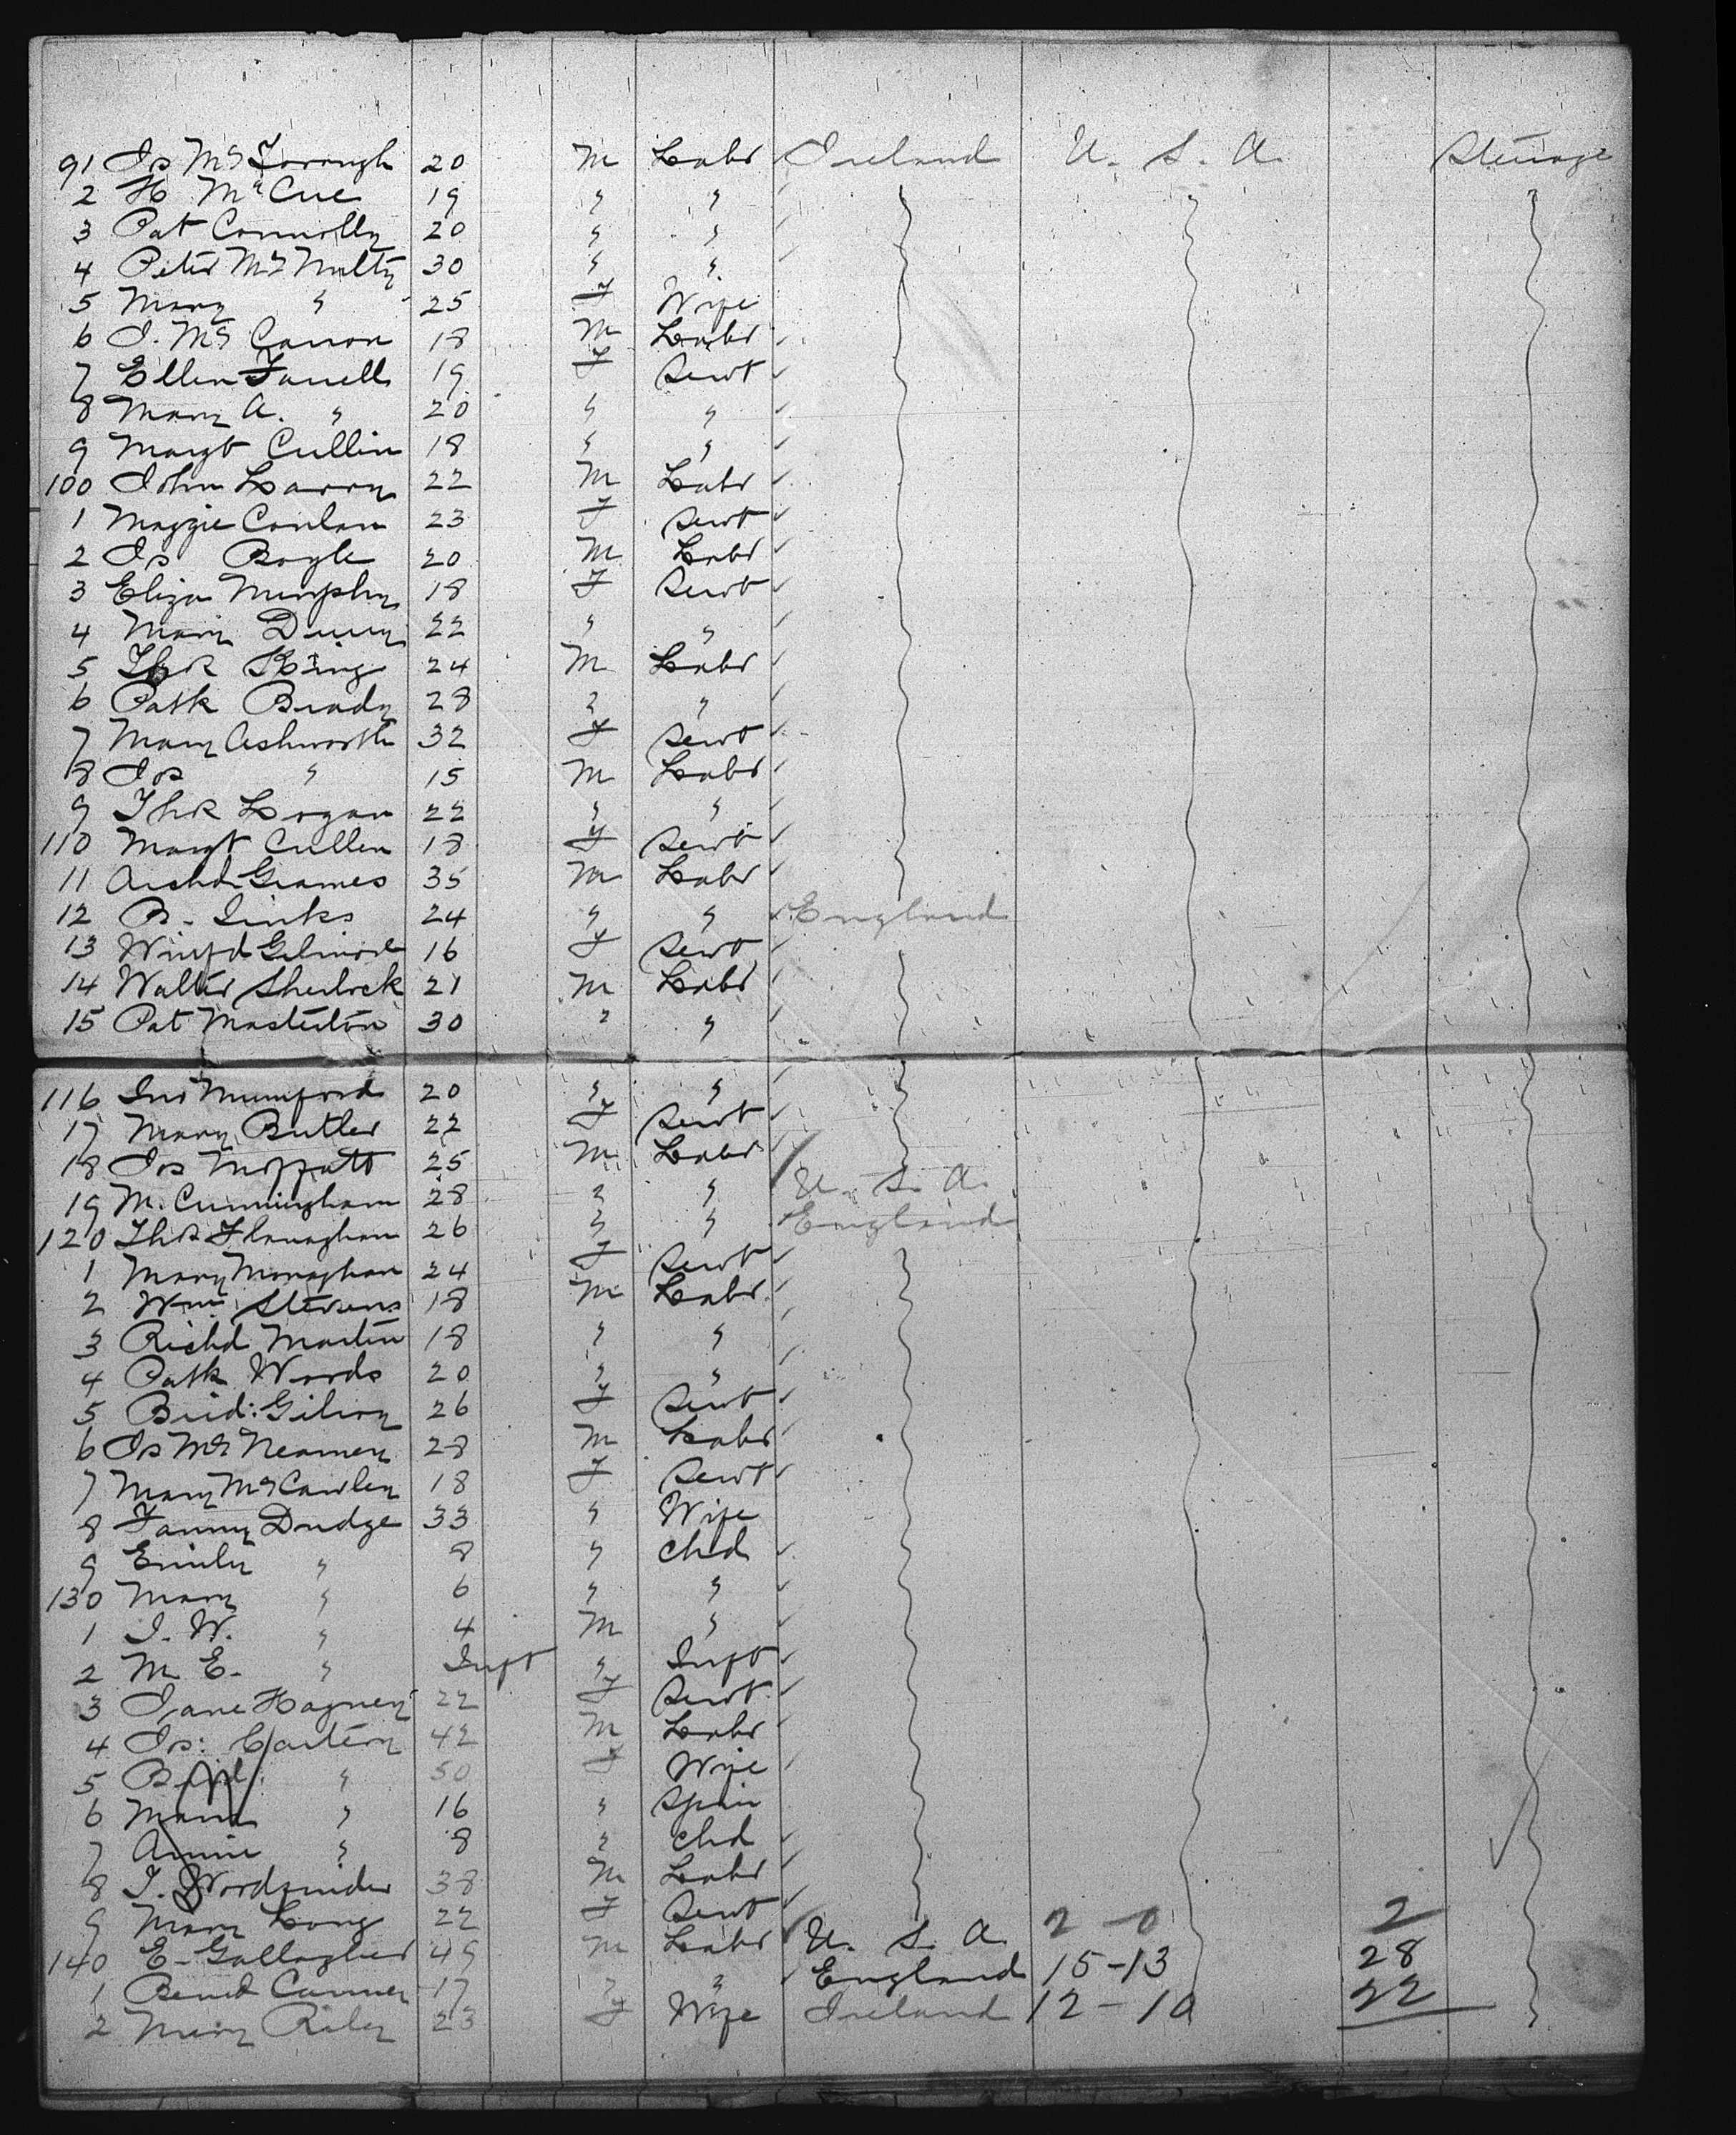 91 Js McGorough 20 M Labr Ireland U. S. A. Steerage
2 H McCue 19 " "
3 Pat Connolly 20 " "
4 Peter McNulty 30 " "
5 Mary " 25 F Wife
6 J. McCarron 18 M Labr
7 Ellen Farrell 19 F Servt
8 Mary A. " 20 " "
9 Margt Cullin 18 " "
100 John Larry 22 M Labr
1 Maggie Conlan 23 F Servt
2 Js Boyle 20 M Labr
3 Eliza Murphy 18 F Servt
4 Mary 22 " "
5 Thos King 24 M Labr
6 Patk Brady 28 " "
7 Mary Ashworth 32 F Servt
8 Jos " 15 M Labr
9 Thos Logan 22 " "
110 Margt Cullen 18 F Servt
11 Archd Grames 35 M Labr
12 B. Jinks 24 " " England
13 Winfd Gilmore 16 F Servt
14 Walter Sherlock 21 M Labr
15 Pat Masterton 30 " "
116 Jno Mumford 20 " "
17 Mary Butler 22 F Servt
18 Jos Moffatt 25 M Labr
19 M. Cunningham 28 " " U. S. A.
120 Thos Flanaghan 26 " " England
1 Mary Monaghan 24 F Servt
2 Wm Stevens 18 M Labr
3 Richd Martin 18 " "
4 Patk Woods 20 " "
5 Brid: Gilroy 26 F Servt
6 Js McNeamey 28 M Labr
7 Mary McCawley 18 F Servt
8 Fanny Dudge 33 " Wife
9 Emily " 8 " Chd
130 Mary " 6 " "
1 J. W. " 4 M "
2 M E. " Inft " Inft
3 Jane Hagney 22 F Servt
4 Js: Cartery 42 M Labr
5 " 50 F Wife
6 Maria " 16 " Spin
7 Annie " 8 " Chd
8 J. 38 M Labr
9 Mary Long 22 F Servt 2 - 0 2
140 E. Gallagher 45 M Labr U. S. A. 15-13 28
1 Bernd 17 " " England 12-10 22
2 Mary Riley 23 F Wife Ireland